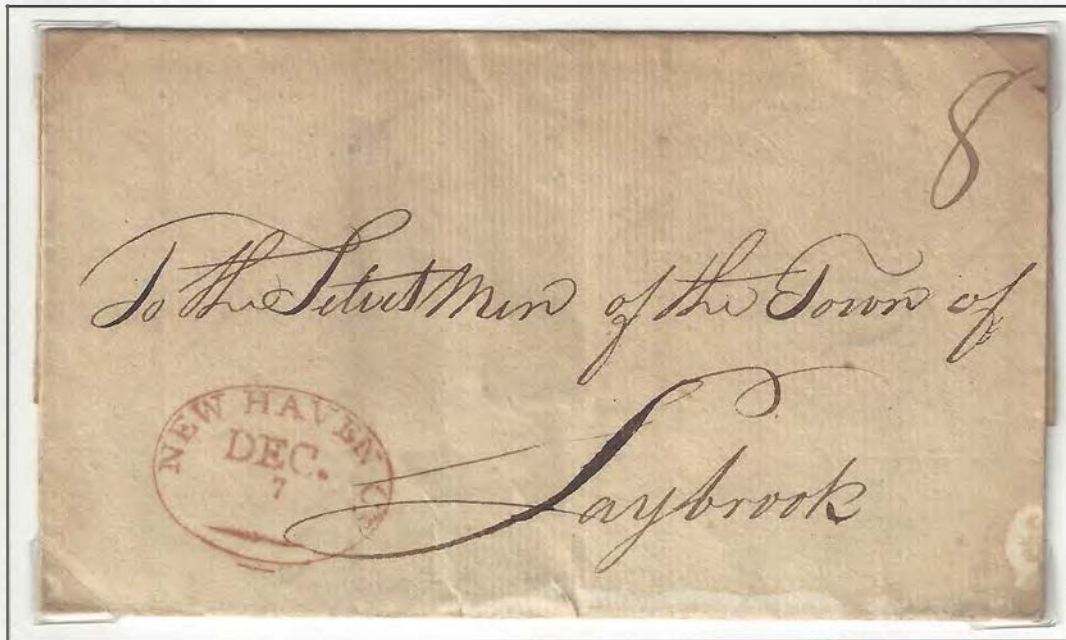 8
To the Select Men of the Town of
Saybrook
NEW HAVEN Ct
DEC.
7